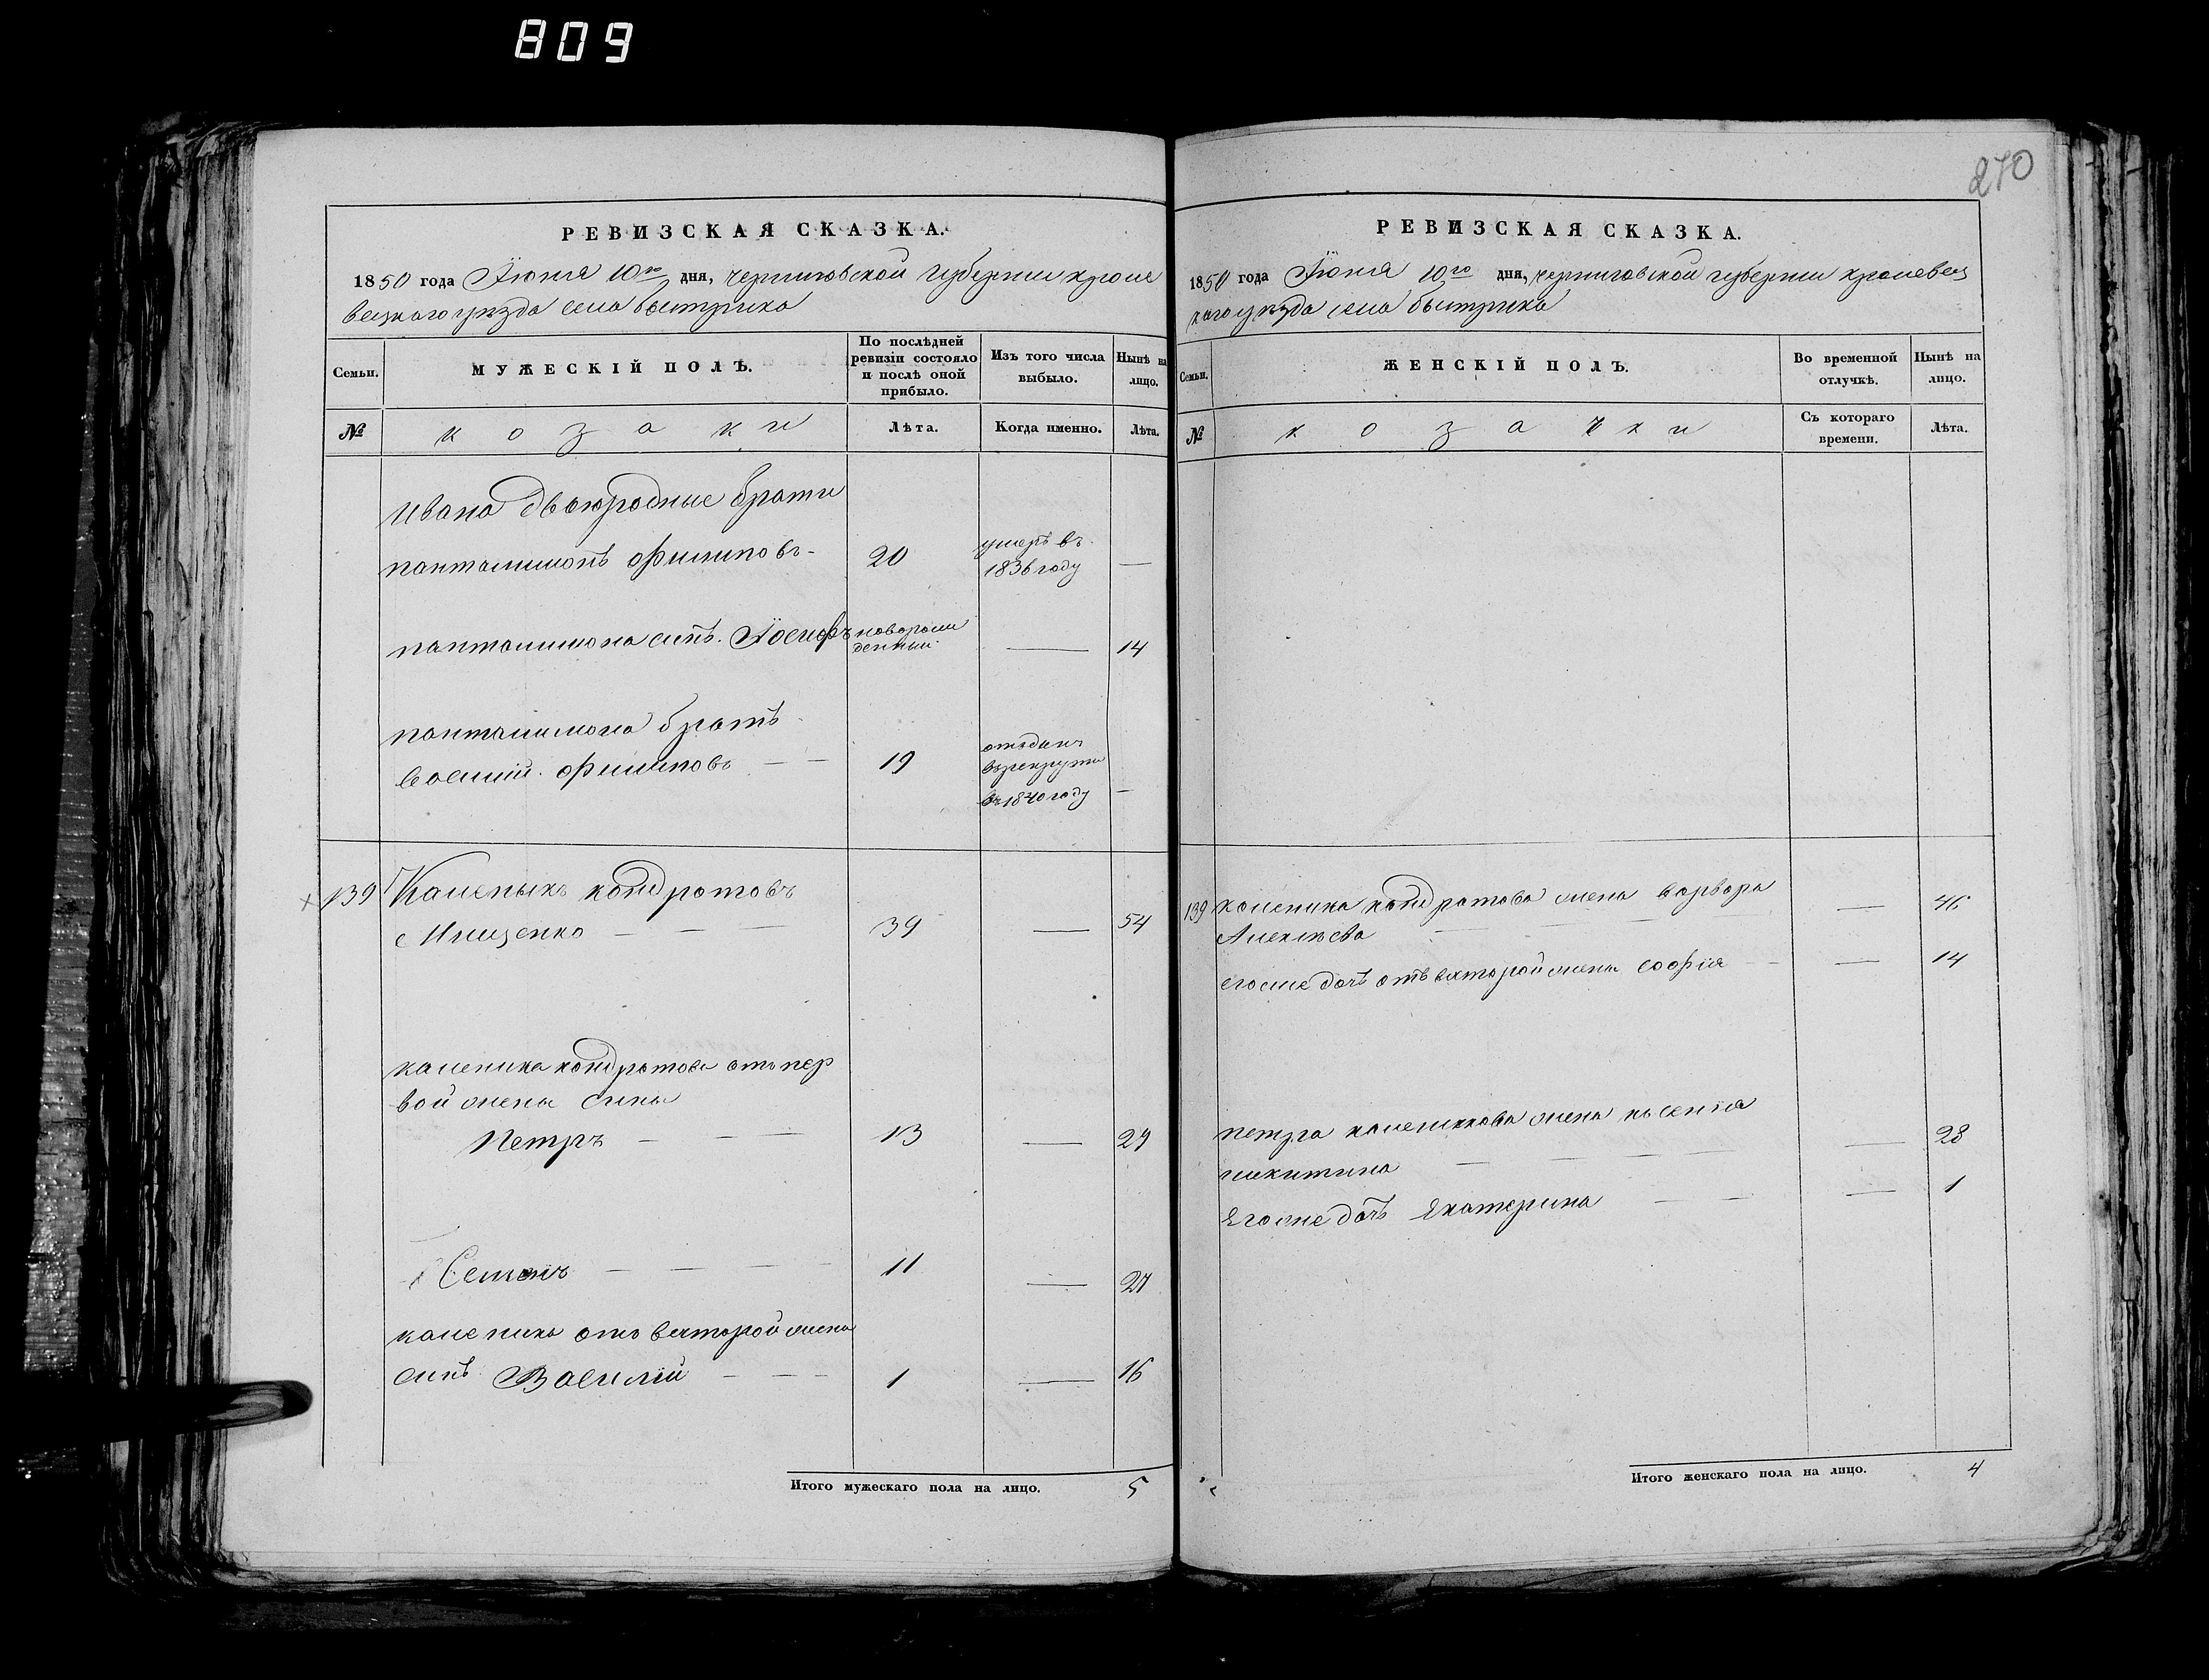 809
270
РЕВИЗСКАЯ СКАЗКА.
1850 года Іюня 10го дня, черниговской губерніи кроле
вецкаго уезда села быстрика
Семьи. МУЖЕСКІЙ ПОЛЪ. По послѣдней ревизіи состояло и послѣ оной прибыло. Изъ того числа выбыло. Нынѣ на лицо.
№ козаки Лѣта. Когда именно. Лѣта.
Ивана двоюродные брати
пантелимонъ филиповъ- 20 умеръ въ 1836 году —
пантелимона сынъ Іосифъ новорожденный — 14
пантелимона братъ
василий филиповъ — — 19 отдан в рекруты въ 1840 году —
139 Каленыкъ кондратовъ
Мищенко — — — 39 — 54
каленика кондратова отъ пер
вой жены сыны
Петръ — — — 13 — 29
Семенъ — — — — 11 — 27
каленика отъ вхторой жены
сынъ Василий — — — 1 — 16
Итого мужескаго пола на лицо. 5
РЕВИЗСКАЯ СКАЗКА.
1850 года Іюня 10го дня, черниговской губерніи кролевец
каго уезда села быстрика
Семьи. ЖЕНСКІЙ ПОЛЪ. Во временной отлучкѣ. Нынѣ на лицо.
№ козачки Съ котораго времени. Лѣта.
139 каленика кондратова жена варвара — 46
Алексѣева
егоже дочь отъ вхторой жены софія — — 14
петра каленикова жена ксенія — 28
никитина — — — —
Егоже дочь Екатерина — — — 1
Итого женскаго пола на лицо. 4